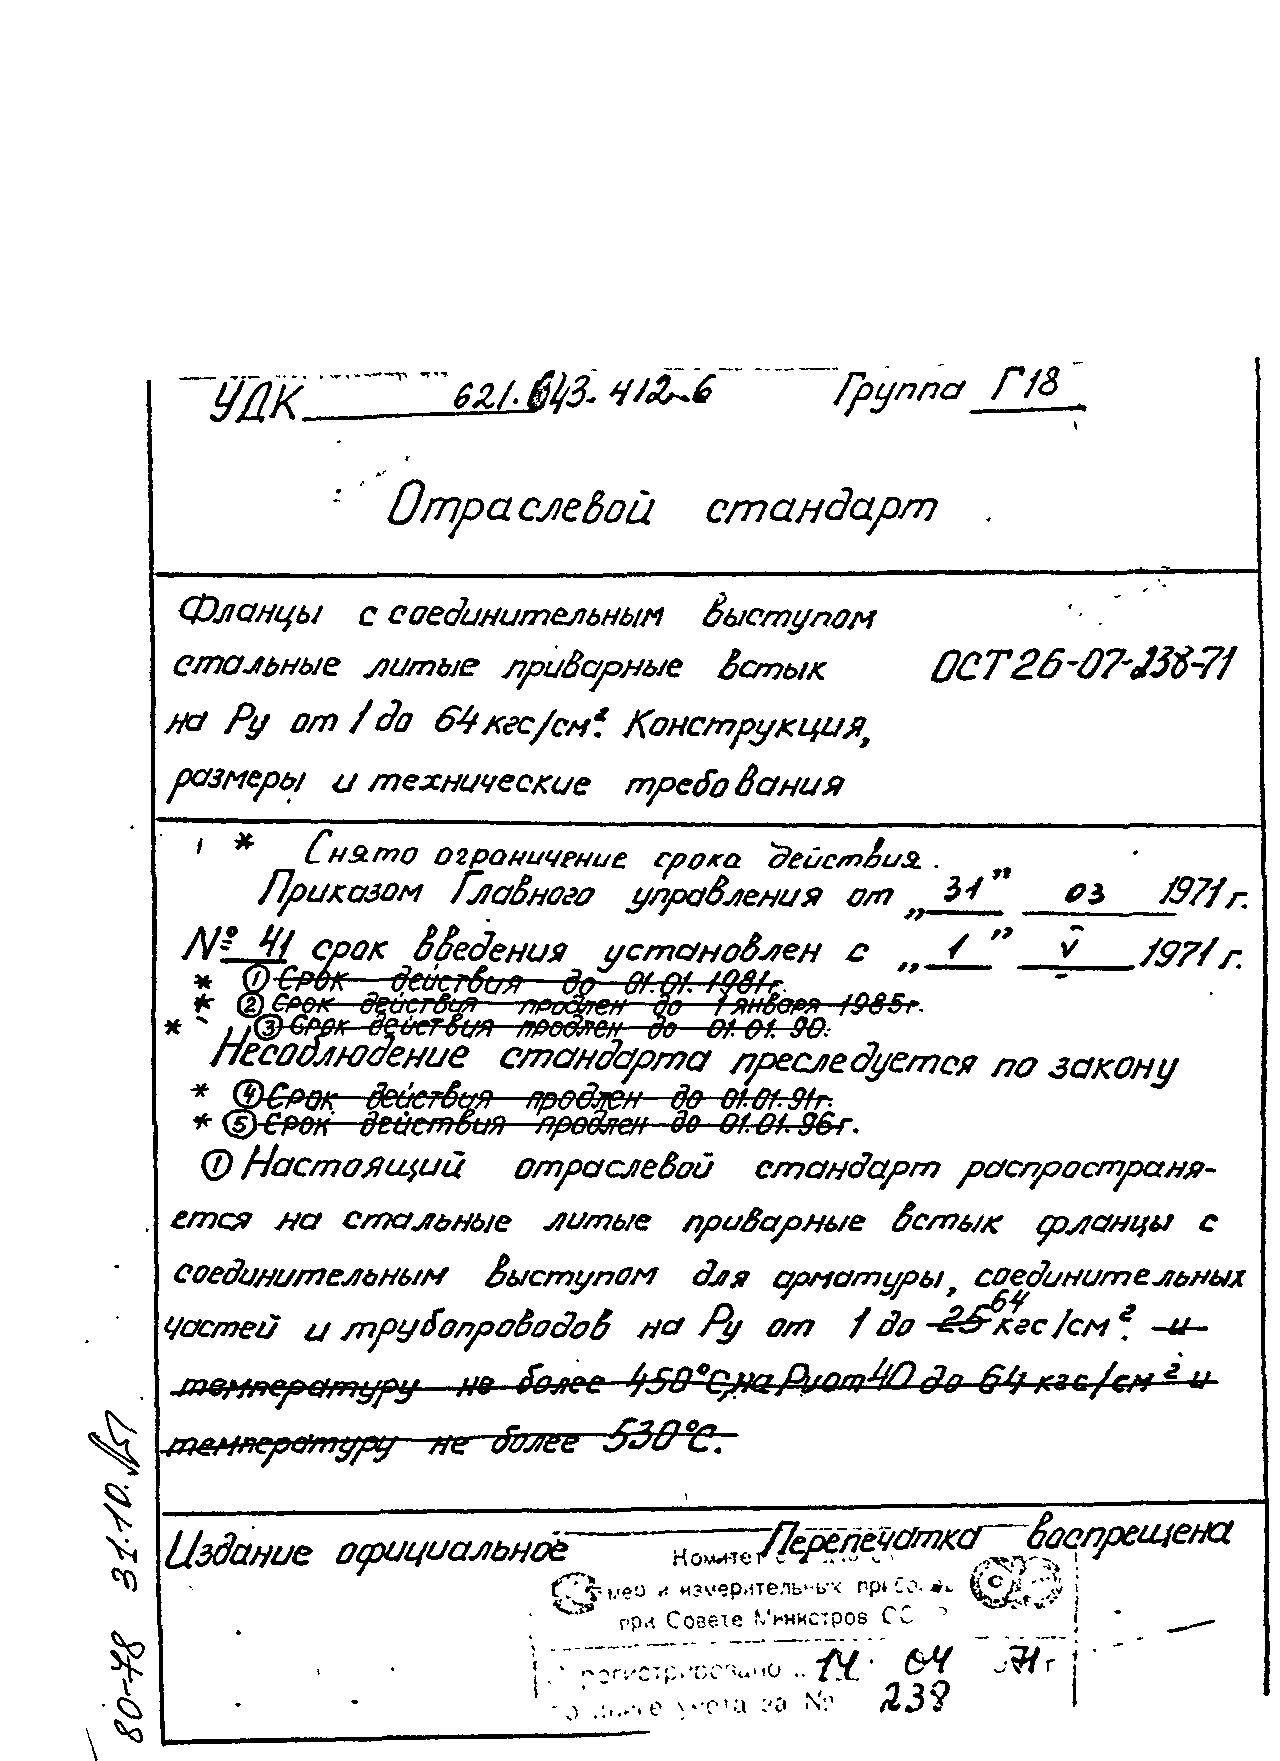 УДК 621.643.412.6 Группа Г18
Отраслевой стандарт
Фланцы с соединительным выступом
стальные литые приварные встык ОСТ 26-07-238-71
на Ру от 1 до 64 кгс/см². Конструкция,
размеры и технические требования
* Снято ограничение срока действия.
Приказом Главного управления от „31" 03 1971 г.
№ 41 срок введения установлен с „1" V 1971 г.
* ① Срок действия до 01.01.1981г.
* ② Срок действия продлен до 1 января 1985г.
* ③ Срок действия продлен до 01.01.90.
Несоблюдение стандарта преследуется по закону
* ④ Срок действия продлен до 01.01.91г.
* ⑤ Срок действия продлен до 01.01.96г.
① Настоящий отраслевой стандарт распространя-
ется на стальные литые приварные встык фланцы с
соединительным выступом для арматуры, соединительных
частей и трубопроводов на Ру от 1 до 25 64 кгс/см². и
температуру не более 450°С, на Ру от 40 до 64 кгс/см² и
температуру не более 530°С.
Издание официальное Перепечатка воспрещена
Комитет
мер и измерительных
при Совете Министров
14 04 71 г
учета за № 238
80-78 31.10.